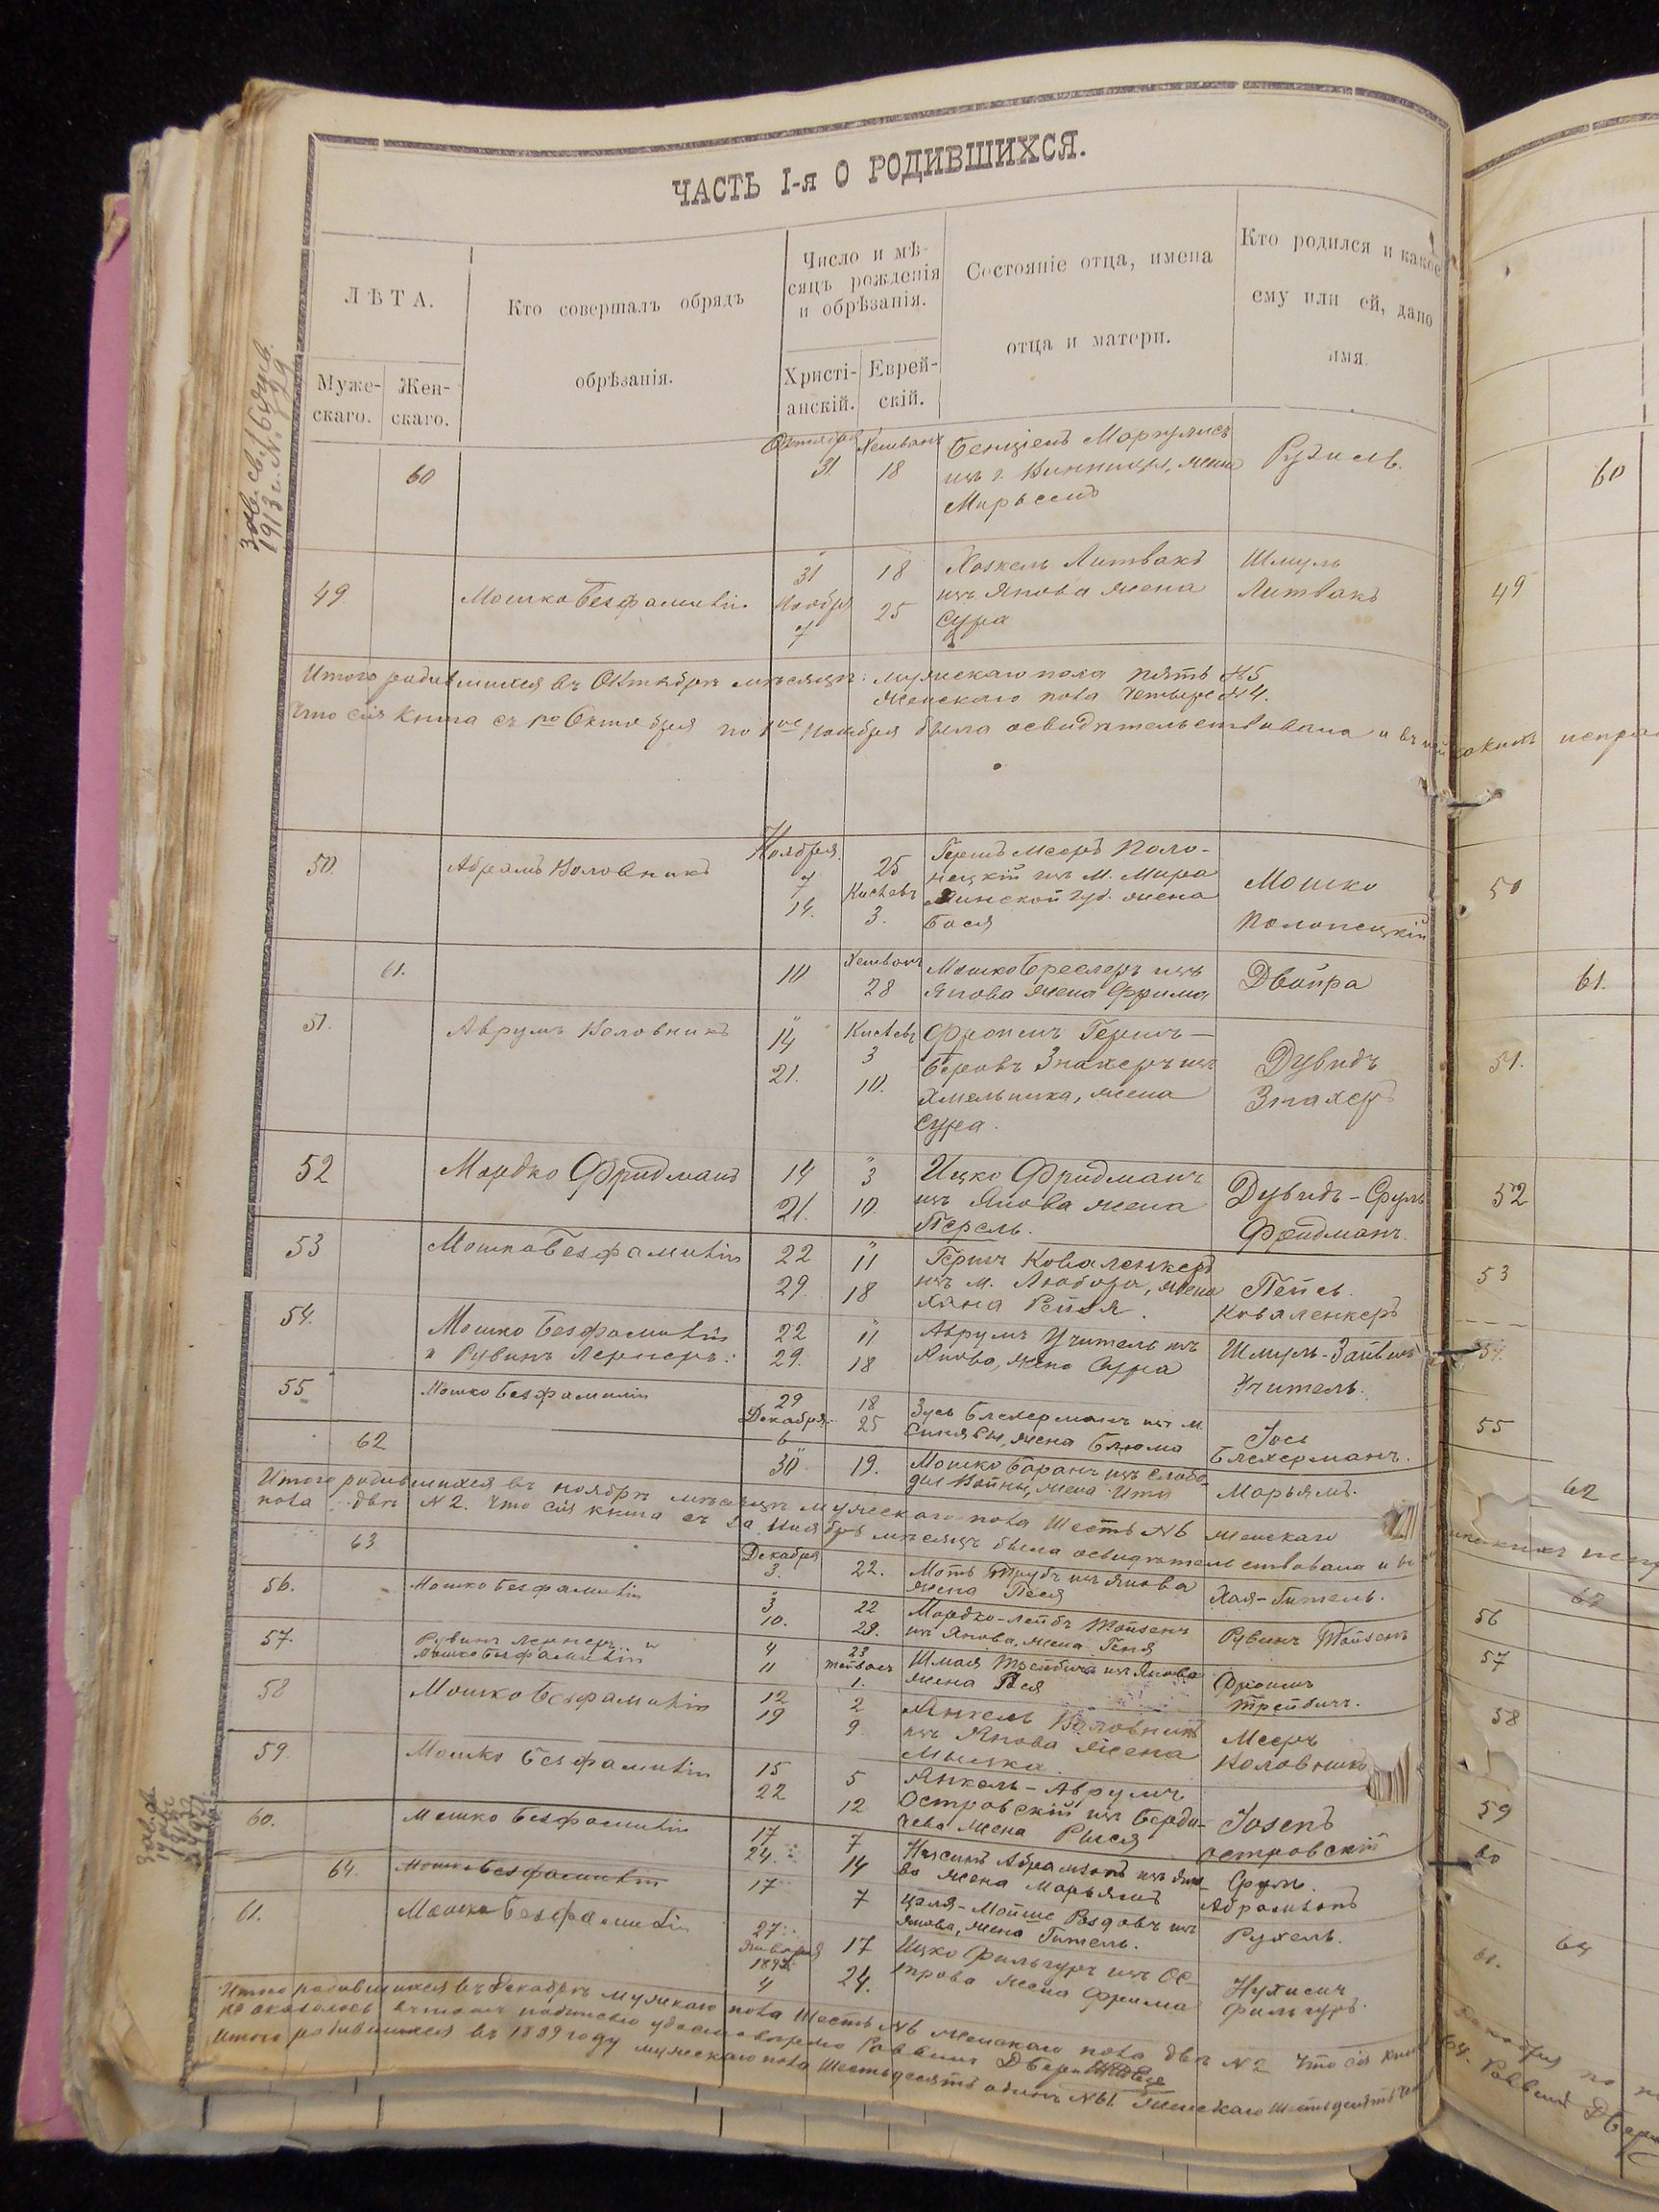 ЧАСТЬ I-я О РОДИВШИХСЯ.
ЛѢТА.
Муже-
скаго.
Жен-
скаго.
Кто совершалъ обрядъ
обрѣзанія.
Число и мѣ-
сяцъ рожденія
и обрѣзанія.
Христі-
анскій.
Еврей-
скій.
Состояніе отца, имена
отца и матери.
Кто родился и какое
ему или ей, дано
имя.
60
Октября
31
Хешванъ
18
Бенціенъ Маргулисъ
изъ г. Винницы, жена
Марьямъ
Рухель.
60
49
Мошко Безфамилій
31
Ноября
7
18
25
Хаскель Литвакъ
изъ Янова жена
Сура
Шмуль
Литвакъ
49
Итого родившихся въ Октябрѣ мѣсяцѣ: мужескаго пола пять №5
женскаго пола четыре №4.
Что сія книга съ 1го Октября по 1ое Ноября была освидѣтельствована и въ ней
50
Абрамъ Коловникъ
Ноября
7
14.
25
Кислевъ
3.
Гершъ Мееръ Поло-
нецкій изъ М. Мира
Минской губ. жена
Бася
Мошко
Полонецкій
50
61.
10
Хешванъ
28
Мошко Бреслеръ изъ
Янова жена Фрима
Двойра
61.
51.
Аврумъ Коловникъ
14
21.
Кислевъ
3
10.
Фроимъ Гершъ-
Беровъ Знахеръ изъ
Хмельника, жена
Сура.
Дувидъ
Знахеръ
51.
52
Мордко Фридманъ
14
21.
3
10.
Ицко Фридманъ
изъ Янова жена
Перель.
Дувидъ-Сруль
Фридманъ.
52
53
Мошко Безфамилій
22
29.
11
18
Гершъ Коваленкеръ
изъ м. Любара, жена
Хана Рейзя.
Пейсь
Коваленкеръ
53
54.
Мошко Безфамилій
и Рувинъ Лернеръ.
22
29.
11
18
Аврумъ Учитель изъ
Янова, жена Сура
Шмуль-Зайвель
Учитель.
54.
55
Мошко Безфамилій
29
Декабря
6
18
25
Зусь Блехерманъ изъ м.
Синявы, жена Блюма
Іось
Блехерманъ.
55
62
30
19.
Мошко Баранъ изъ Слобо-
жена Ита
Марьямъ.
62
Итого родившихся въ ноябрѣ мѣсяцѣ мужескаго пола шесть №6 женскаго
пола двѣ №2. Что сія книга за Ноябрь мѣсяцъ была освидѣтельствована и въ
63
Декабря
3.
22.
Моть Трубъ изъ Янова
жена Песя
Хая-Гитель.
56.
Мошко Безфамилій
3
10.
22
29.
Мордко-Лейбъ Тойзенъ
изъ Янова, жена Геня
Рувинъ Тойзенъ
56
57.
Рувинъ Лернеръ и
Мошко Безфамилій
4
11
23
Тейвесъ
1.
Шмая Трейбичъ изъ Янова
жена
Фроимъ
Трейбичъ.
57
58
Мошко Безфамилій
12
19
2
9
Янкель Коловникъ
изъ Янова жена
Мееръ
Коловникъ
58
59.
Мошко Безфамилій
15
22
5
12
Янкель-Аврумъ
Островскій изъ Берди-
чева жена Рыся
Іосепъ
Островскій
59
60.
Мошко Безфамилій
17
24.
7
14
Нусинъ Абрамзонъ изъ Яно-
ва жена Марьямъ
Сруль
Абрамзонъ
60
64.
Мошко Безфамилій
17
7
Цаля-Мойше изъ
Янова, жена Гитель.
Рухель.
64
61.
Мошко Безфамилій
27
Января
4
17
24.
Ицко Фильгуръ изъ Ос-
трова жена Фрима
Нухимъ
Фильгуръ.
61.
Итого родившихся въ Декабрѣ мужескаго пола шесть №6 женскаго пола двѣ №2 Что сія книга
Итого родившихся въ 1889 году мужескаго пола шестьдесятъ одинъ №61. женскаго